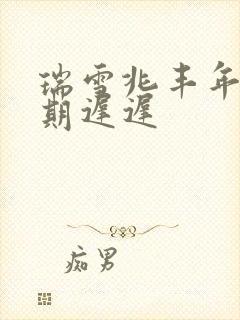 瑞雪兆丰年
期遲遲
痴男